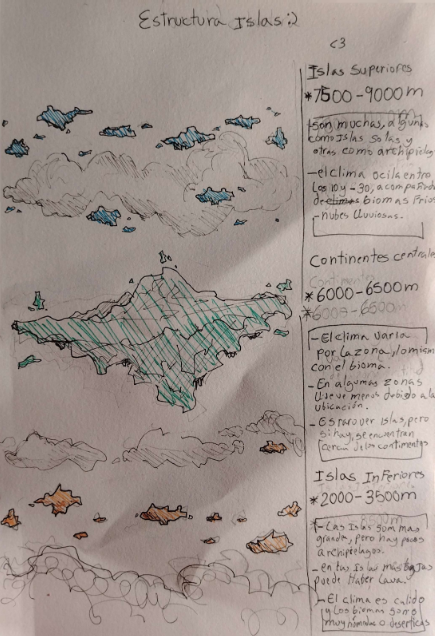 Estructura Islas:2
c3
Islas Superiores
*7500-9000m
son muchas, algunas
como Islas solas y
otras como archipielag
-el clima ocila entre
los 10 y -30, acompañado
de climas biomas Frios
-nubes lluviosas.
Continentes centrales
*6000-6500m
*6000-6500m
-El clima varia
por la zona, lo mism
con el bioma.
-En algunas zonas
llueve menos debido a la
ubicación.
-Es raro ver islas, pero
si hay, se encuentran
cerca de los continentes
Islas Inferiores
*2000-3500m
-Las Islas son mas
grande, pero hay pocos
archipielagos.
-en las Islas más bajas
puede Haber Lava.
-El clima es calido
y los biomas son
muy o deserticos